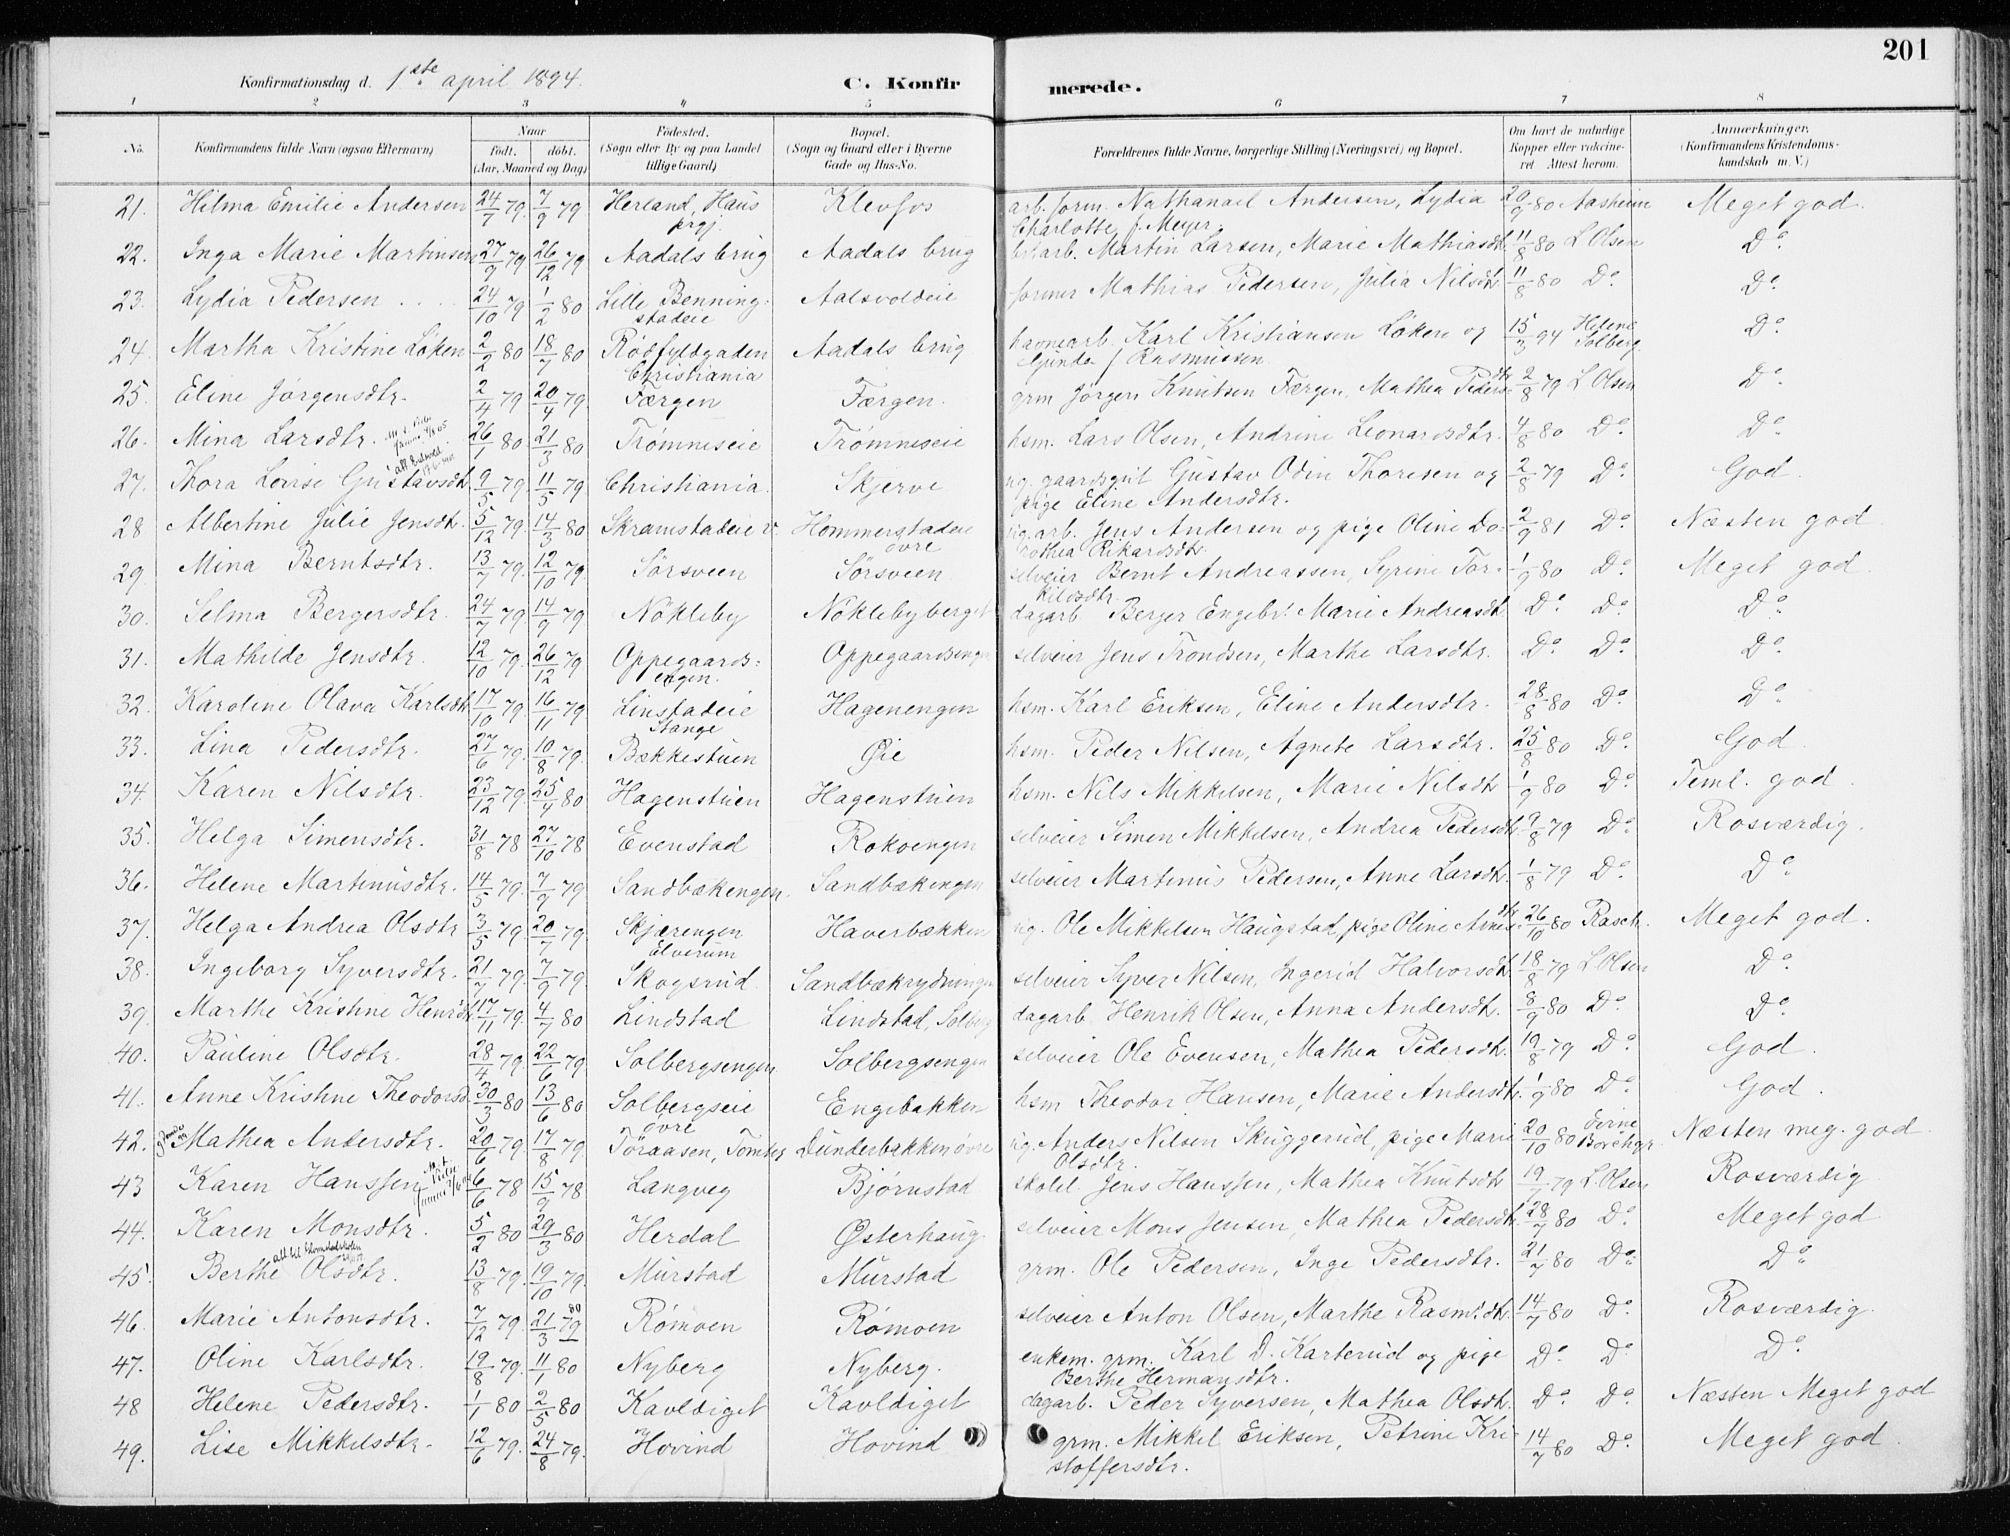 201
Konfirmationsdag d. 1ste april 1894.
C. Konfirmerede.
1 2 3 4 5 6 7 8
No. Konfirmandens fulde Navn (ogsaa Efternavn) Naar født. døbt. (Aar, Maaned og Dag) Fødested. (Sogn eller By og paa Landet tillige Gaard) Bopæl. (Sogn og Gaard eller i Byerne Gade og Hus-No. Forældrenes fulde Navne, borgerlige Stilling (Næringsvei) og Bopæl. Om havt de naturlige Kopper eller vakcineret Attest herom. Anmærkninger. (Konfirmandens Kristendomskundskab m. V.)
21. Hilma Emilie Andersen 24/7 79. 7/9 79 Herland, Haus prgj. Klevfos arb. form. Nathanael Andersen, Lydia Charlotte f. Meyer. 20/9 80 Aasheim Meget god.
22. Inga Marie Martinsen 27/9 79 26/12 79 Aadals brug Aadals brug Martin Larsen, Marie Mathiasdtr. 11/8 80 L Olsen Do.
23. Lydia Pedersen 24/10 79 1/2 80 Lille Benningstadeie Aalsvoldeie former Mathias Pedersen, Julia Nilsdtr. 11/8 80 Do. Do.
24. Martha Kristine Løken 2/2 80 18/7 80 Rødfyldgaden Christiania Aadals brug havnearb. Karl Kristiansen Løken og Gunda f Rasmussen. 15/3 94 Helene Solberg. Do.
25. Eline Jørgensdtr. 2/4 79 20/4 79. Færgen Færgen. grm Jørgen Knutsen Færgen, Mathea Pedersdtr 2/8 79 L Olsen Do.
26. Mina Larsdtr. 26/1 80 21/3 80 Trømneseie Trømneseie hsm. Lars Olsen, Andrine Leonardsdtr. 4/8 80 Do. Do.
27. Thora Lovise Gustavsdtr. 9/5 79. 11/5 79 Christiania. Skjerve ug. gaardsgut Gustav Odin Thoresen og pige Eline Andersdtr. 2/8 79 Do. God.
28 Albertine Julie Jensdtr. 5/12 79. 14/3 80 Skramstadeie v. Hommerstadeie øvre ug. arb. Jens Andersen og pige Oline Dorothea Rikardsdtr. 2/9 81 Do. Næsten god
29. Mina Berntsdtr. 13/7 79. 12/10 79. Sørsveen Sørsveen selveier Bernt Andreassen, Syrine Torkildsdtr. 1/9 80 Do. Meget god
30. Selma Bergersdtr. 24/7 79 14/9 79 Nøkleby Nøklebyberget dagarb Berger Engebr. Marie Andreasdtr. Do. Do. Do.
31. Mathilde Jensdtr. 12/10 79. 26/12 79 Oppegaardsengen. Oppegaardsengen selveier Jens Trondsen, Marthe Larsdtr. Do. Do. Do.
32. Karoline Olava Karlsdtr. 17/10 79 16/11 79 Linstadeie Stange Hagenengen hsm. Karl Eriksen, Eline Andersdtr. 28/8 80 Do. Do.
33. Lina Pedersdtr. 27/6 79. 10/8 79. Bækkestuen Øie hsm. Peder Nilsen, Agnete Larsdtr. 25/8 80 Do. God.
34. Karen Nilsdtr. 23/12 79. 25/4 80 Hagenstuen Hagenstuen hsm. Nils Mikkelsen, Marie Nilsdtr 1/9 80 Do. Teml. god.
35. Helga Simensdtr. 31/8 78 27/10 78 Evenstad Rokoengen selveier Simen Mikkelsen, Andrea Pedersdtr. 9/8 79 Do. Rosværdig.
36. Helene Martinusdtr. 14/5 79. 7/9 79 Sandbækengen. Sandbækengen selveier Martinus Pedersen, Anne Larsdtr. 1/8 79 Do. Do.
37. Helga Andrea Olsdtr 3/5 79 20/7 79 Skjærengen Elverum Haverbækken ug. Ole Mikkelsen Haugstad, pige Oline Arnesdtr. 26/10 80 Rasch. Meget god.
38. Ingeborg Syversdtr. 21/7 79. 7/9 79. Skogsrud. Sandbækrydningen selveier Syver Nilsen, Ingerid Halvorsdtr. 18/8 79 L Olsen Do.
39. Marthe Kristine Henrdtr. 17/11 79. 4/7 80 Lindstad Lindstad, Solberg dagarb. Henrik Olsen, Anna Andersdtr. 8/9 80 Do. Do.
40. Pauline Olsdtr. 28/4 79 22/6 79 Solbergsengen Solbergsengen selveier Ole Evensen, Mathea Pedersdtr. 19/8 79 Do. God.
41. Anne Kristine Theodorsd. 30/3 80 13/6 80 Solbergseie øvre Engebakken hsm Theodor Hansen, Marie Andersdtr. 1/9 80 Do. God.
42. Mathea Andersdtr. 20/6 79. 17/8 79 Tøraasen, Tomter Dunderbakken øvre ug. Anders Nilsen Skuggerud, pige Marie Olsdtr. 20/10 80 Næsten meg. god
43 Karen Hanssen 6/6 78 15/9 78 Langveg Bjørnstad skolel. Jens Hanssen, Mathea Knutsdtr 19/7 79 L. Olsen Rosværdig
44. Karen Monsdtr. 5/2 80 29/3 80 Herdal Østerhaug selveier Mons Jensen, Mathea Pedersdtr. 28/7 80 Do. Meget god
45. Berthe Olsdtr. 13/8 79. 19/10 79. Murstad Murstad grm. Ole Pedersen, Inge Pedersdtr. 21/7 80 Do. Do.
46. Marie Antonsdtr. 7/12 79. 21/3 79 80 Rømoen Rømoen selveier Anton Olsen, Marthe Rasm.dtr. 14/7 80 Do. Rosværdig.
47. Oline Karlsdtr. 19/8 79. 11/1 80 Nyberg Nyberg. enkem. grm. Karl D. Karterud og pige Berthe Hermansdtr. Do. Do. Do.
48 Helene Pedersdtr. 1/1 80 2/5 80 Kavldiget Kavldiget dagarb. Peder Syversen, Mathea Olsdtr. Do. Do. Næsten Meget god
49. Lise Mikkelsdtr. 12/6 79. 24/8 79. Hovind Hovind grm. Mikkel Eriksen, Petrine Kristoffersdtr. 14/7 80 Do. Meget god